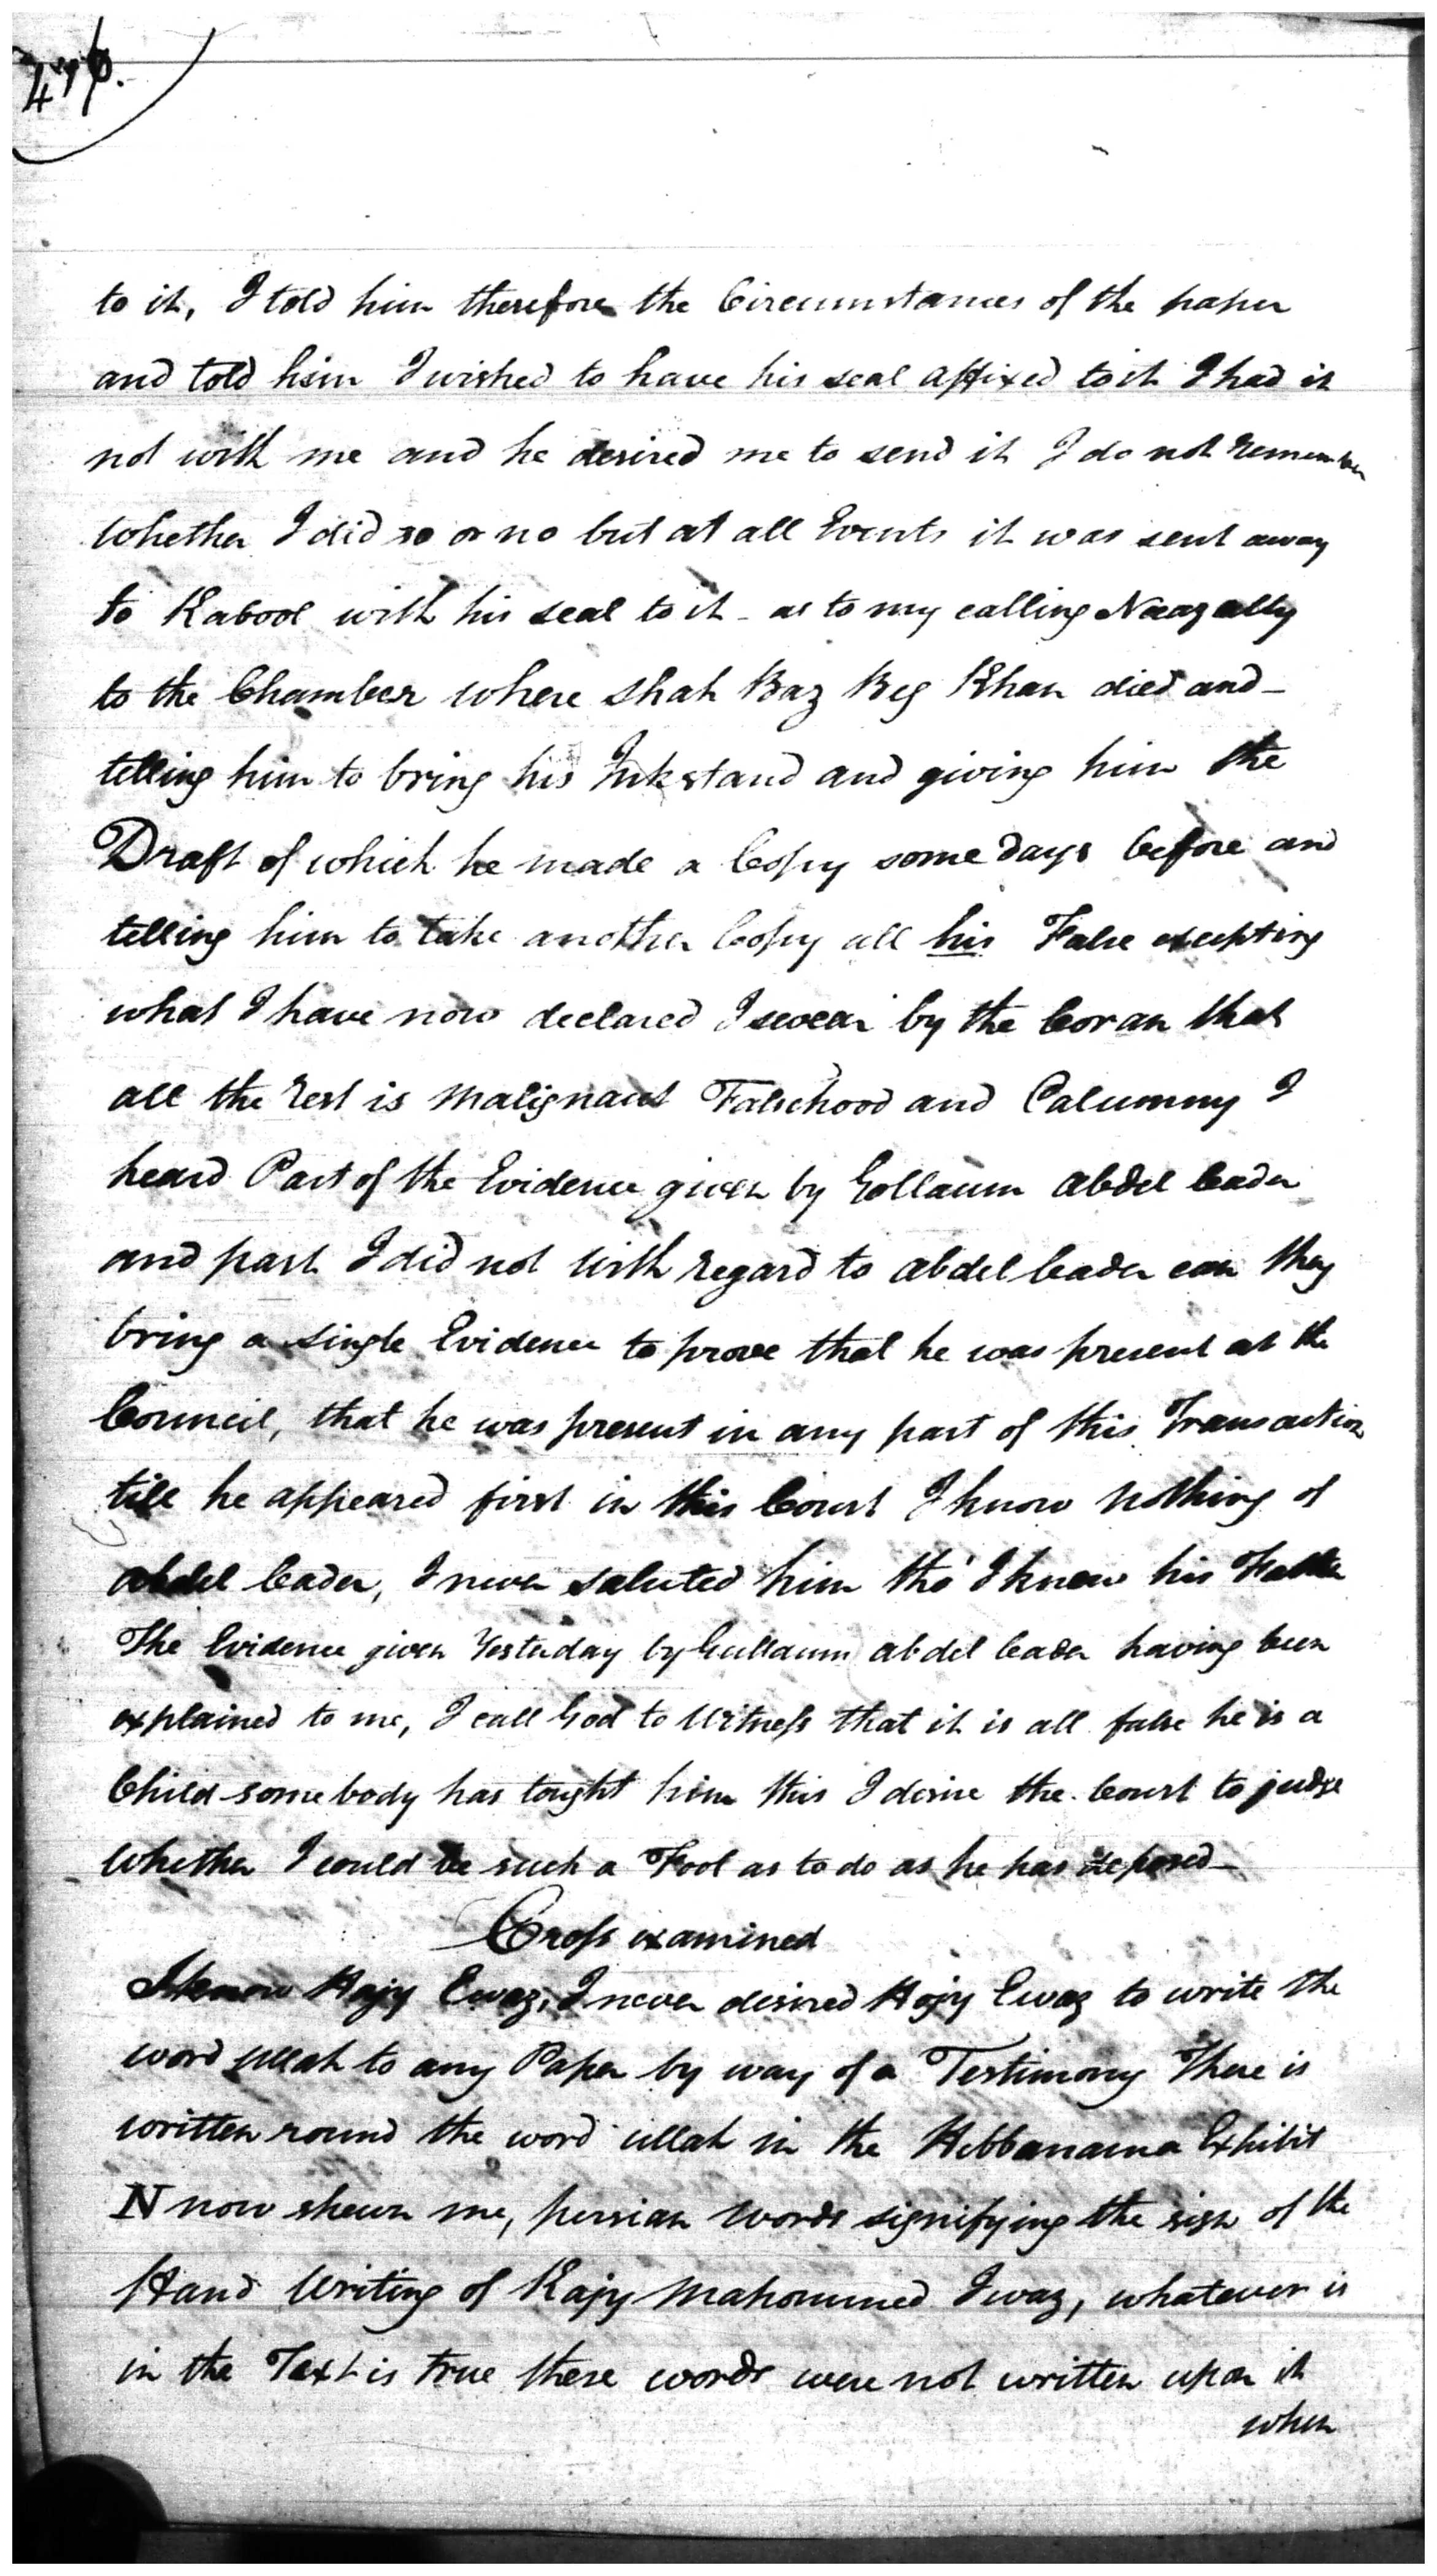 to it, I told him therefore the Circumstances of the paper
and told him I wished to have his seal affixed to it I had it
not with me and he desired me to send it I do not remember
whether I did so or no but at all Events it was sent away
to Kabool with his seal to it - as to my calling Naazally
to the Chamber where Shah Baz Beg Khan died and -
telling him to bring his Inkstand and giving him the
Draft of which he made a Copy some days before and
telling him to take another Copy all his False excepting
what I have now declared I swear by the Coran that
all the rest is malignant Falsehood and Calumny I
heard Part of the Evidence given by Gollaum Abdel Cader
and part I did not with regard to Abdel Cader can they
bring a single Evidence to prove that he was present at the
Council, that he was present in any part of this Transaction
till he appeared first in this Court I know nothing of
Abdel Cader, I never saluted him tho' I knew his Father
The Evidence given Yesterday by Gullaum Abdel Cader having been
explained to me, I call God to Witness that it is all false he is a
Child somebody has tought him this I desire the Court to judge
whether I could be such a Fool as to do as he has deposed -
Cross examined
I know Hajy Ewaz, I never desired Hajy Ewaz to write the
word ullah to any Paper by way of a Testimony There is
written round the word ullah in the Hibbanama Exhibit
N now shewn me, persian words signifying the sign of the
Hand Writing of Kajy Mahommed Iwaz, whatever is
in the Text is true these words were not written upon it
when